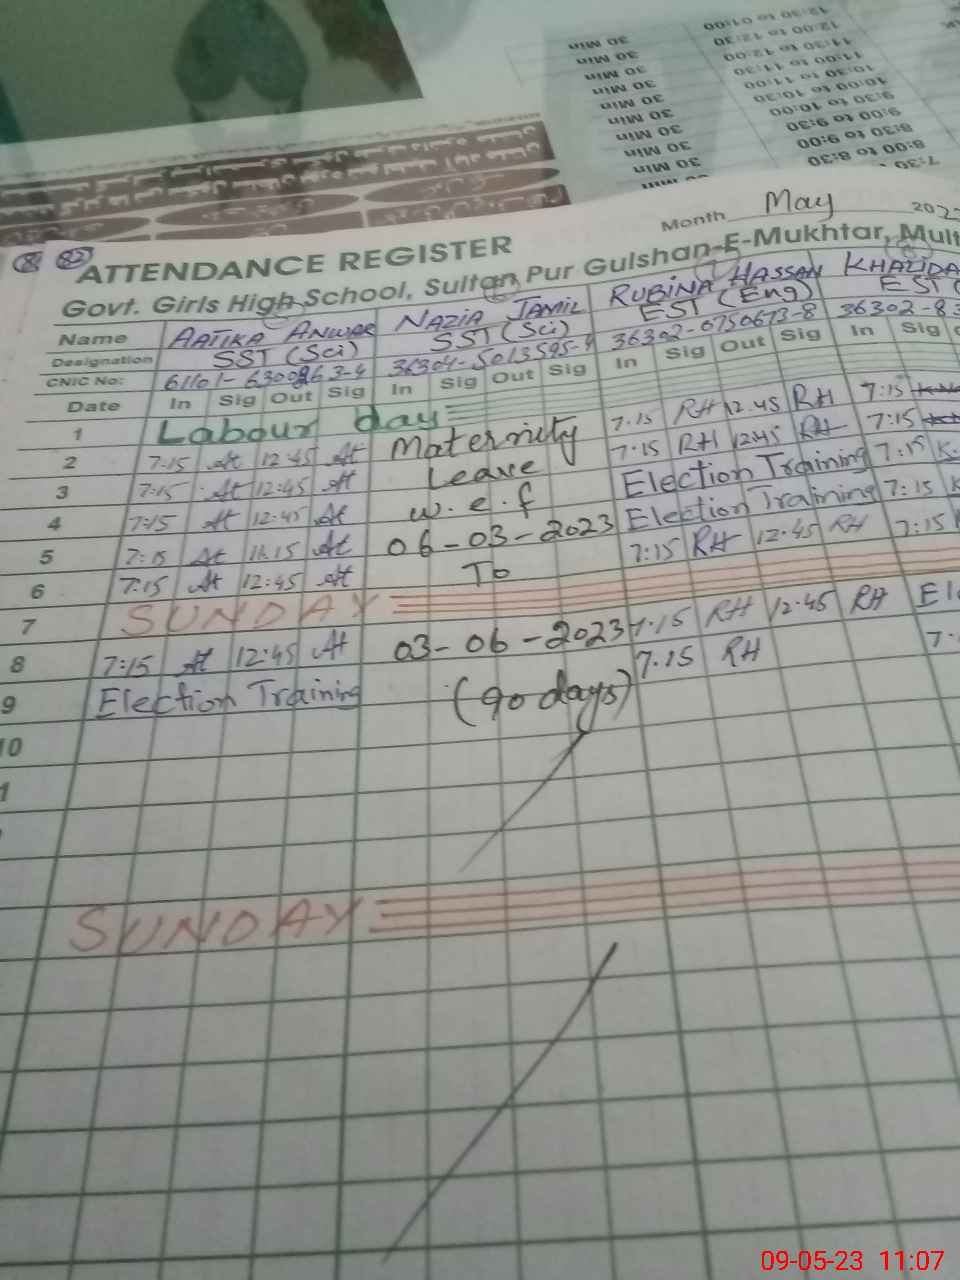 30 Min 12:30 to 01:00
30 Min 12:00 to 12:30
30 Min 11:30 to 12:00
30 Min 11:00 to 11:30
30 Min 10:30 to 11:00
30 Min 10:00 to 10:30
30 Min 9:30 to 10:00
30 Min 9:00 to 9:30
30 Min 8:30 to 9:00
8:00 to 8:30
7:30
Month May 202
82 ATTENDANCE REGISTER
Govt. Girls High School, Sultan Pur Gulshan-E-Mukhtar, Mult
Name AATIKA ANWAR NAZIA JAMIL RUBINA HASSAN KHALIDA
Designation SST (Sci) SST (Sci) EST (Eng) EST (
CNIC No: 61101- 36304-5013595-4 36302-6750673-8 36302-83
Date In Sig Out Sig In Sig Out Sig In Sig Out Sig In Sig
1 Labour day 7.15 RH 12.45 RH 7:15
2 7:15 At 12:45 At Maternity 7.15 RH 12:45 RH 7:15
3 7:15 At 12:45 At Leave Election Training 7:15 K
4 7:15 At 12:45 At w.e.f Election Training 7:15 K
5 7:15 At 11.15 At 06-03-2023 7:15 RH 12:45 RH 7:15
6 7:15 At 12:45 At To
7 SUNDAY
8 7:15 At 12:45 At 03-06-2023 7.15 RH 12.45 RH El
9 Election Training (90 days) 7.15 RH 7.
10
1
SUNDAY
09-05-23 11:07